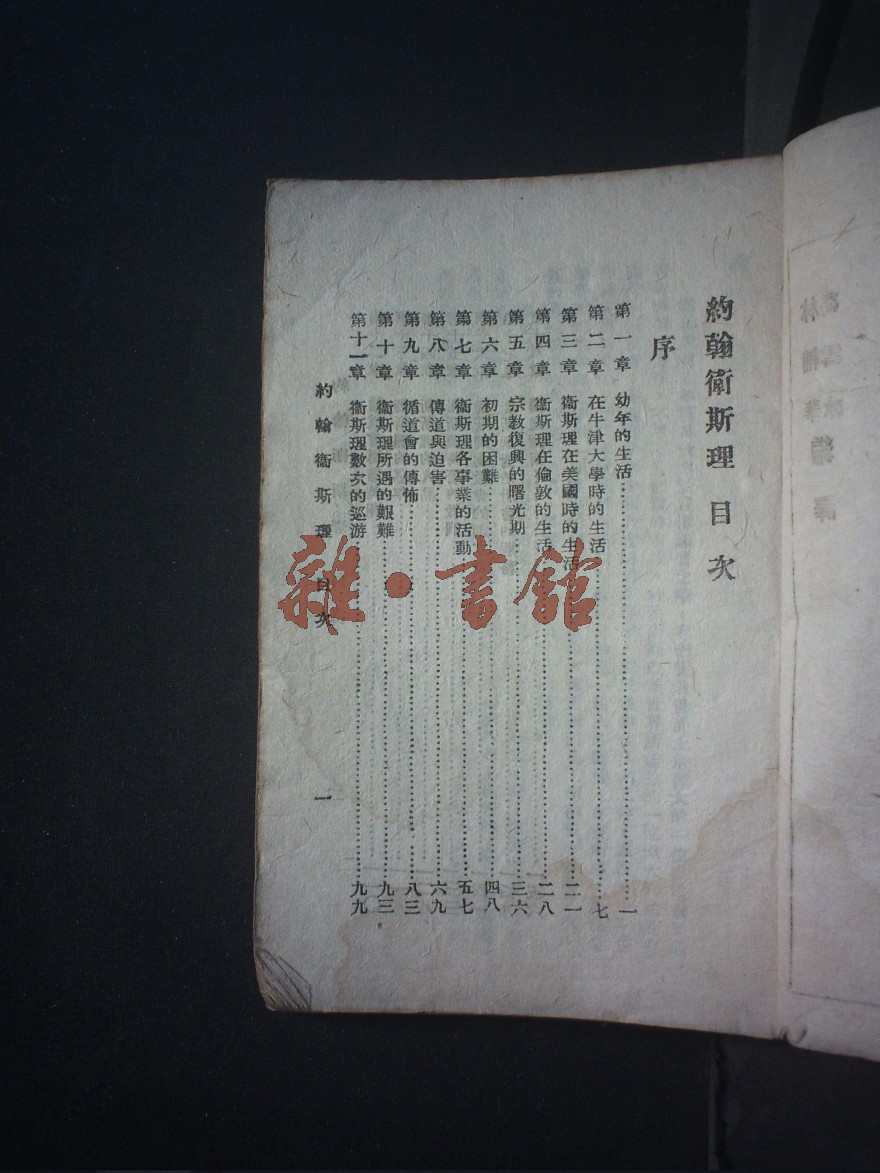 約翰衞斯理 目次
序
第一章 幼年的生活……一
第二章 在牛津大學時的生活……七
第三章 衞斯理在美國時的生活……二一
第四章 衞斯理任倫敦的生活……二八
第五章 宗教復興的曙光期……三六
第六章 初期的困難……四八
第七章 衞斯理各事業的活動……五七
第八章 傳道與迫害……六九
第九章 循道會的傳佈……八三
第十章 衞斯理所遇的艱難……九三
第十一章 衞斯理數次的巡游……九九
約翰衞斯理 目次
一
雜·書館